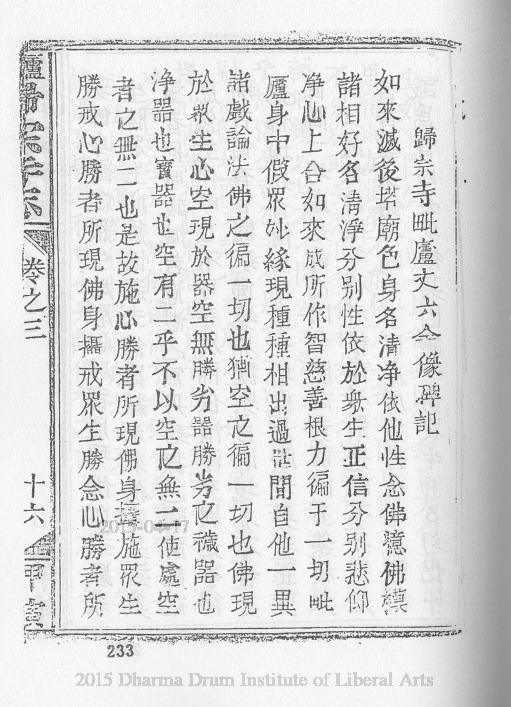 歸宗寺毗廬丈六金像碑記
如來滅後塔廟色身名清净依他性念佛憶佛模
諸相好名清淨分別性依於衆生正信分別悲仰
净心上合如來成所作智慈善根力徧于一切毗
廬身中假眾妙緣現種種相出過世間自他一異
諸戲論法佛之徧一切也猶空之徧一切也佛現
於衆生心空現於器空無勝劣器勝劣之穢器也
净器也寳器也空有二乎不以空之無二使處空
者之無二也是故施心勝者所現佛身攝施眾生
勝戒心勝者所現佛身攝戒眾生勝念心勝者所
廬歸宗寺志
卷之三
十六
甲寅
2015-04-17
233
2015 Dharma Drum Institute of Liberal Arts